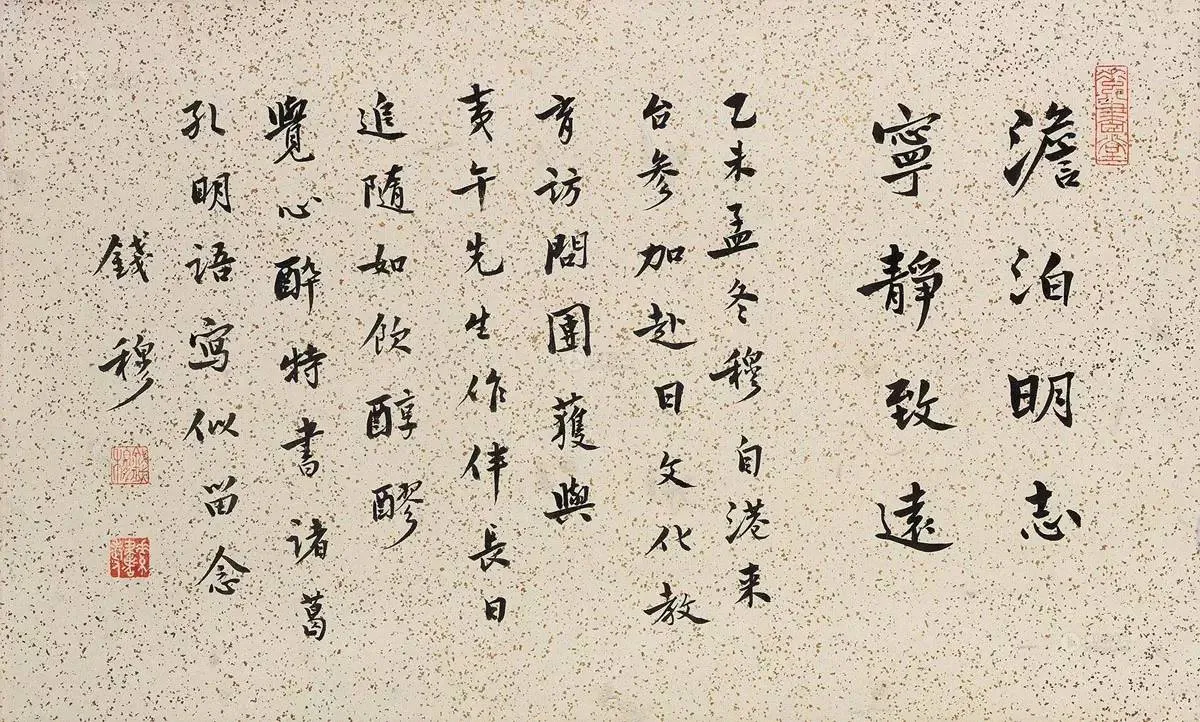 澹泊明志
寧靜致遠
乙未孟冬穆自港来
台参加赴日文化教
育訪問團獲與
夷午先生作伴長日
追隨如飲醇醪
覺心醉特書諸葛
孔明語寫似留念
錢穆